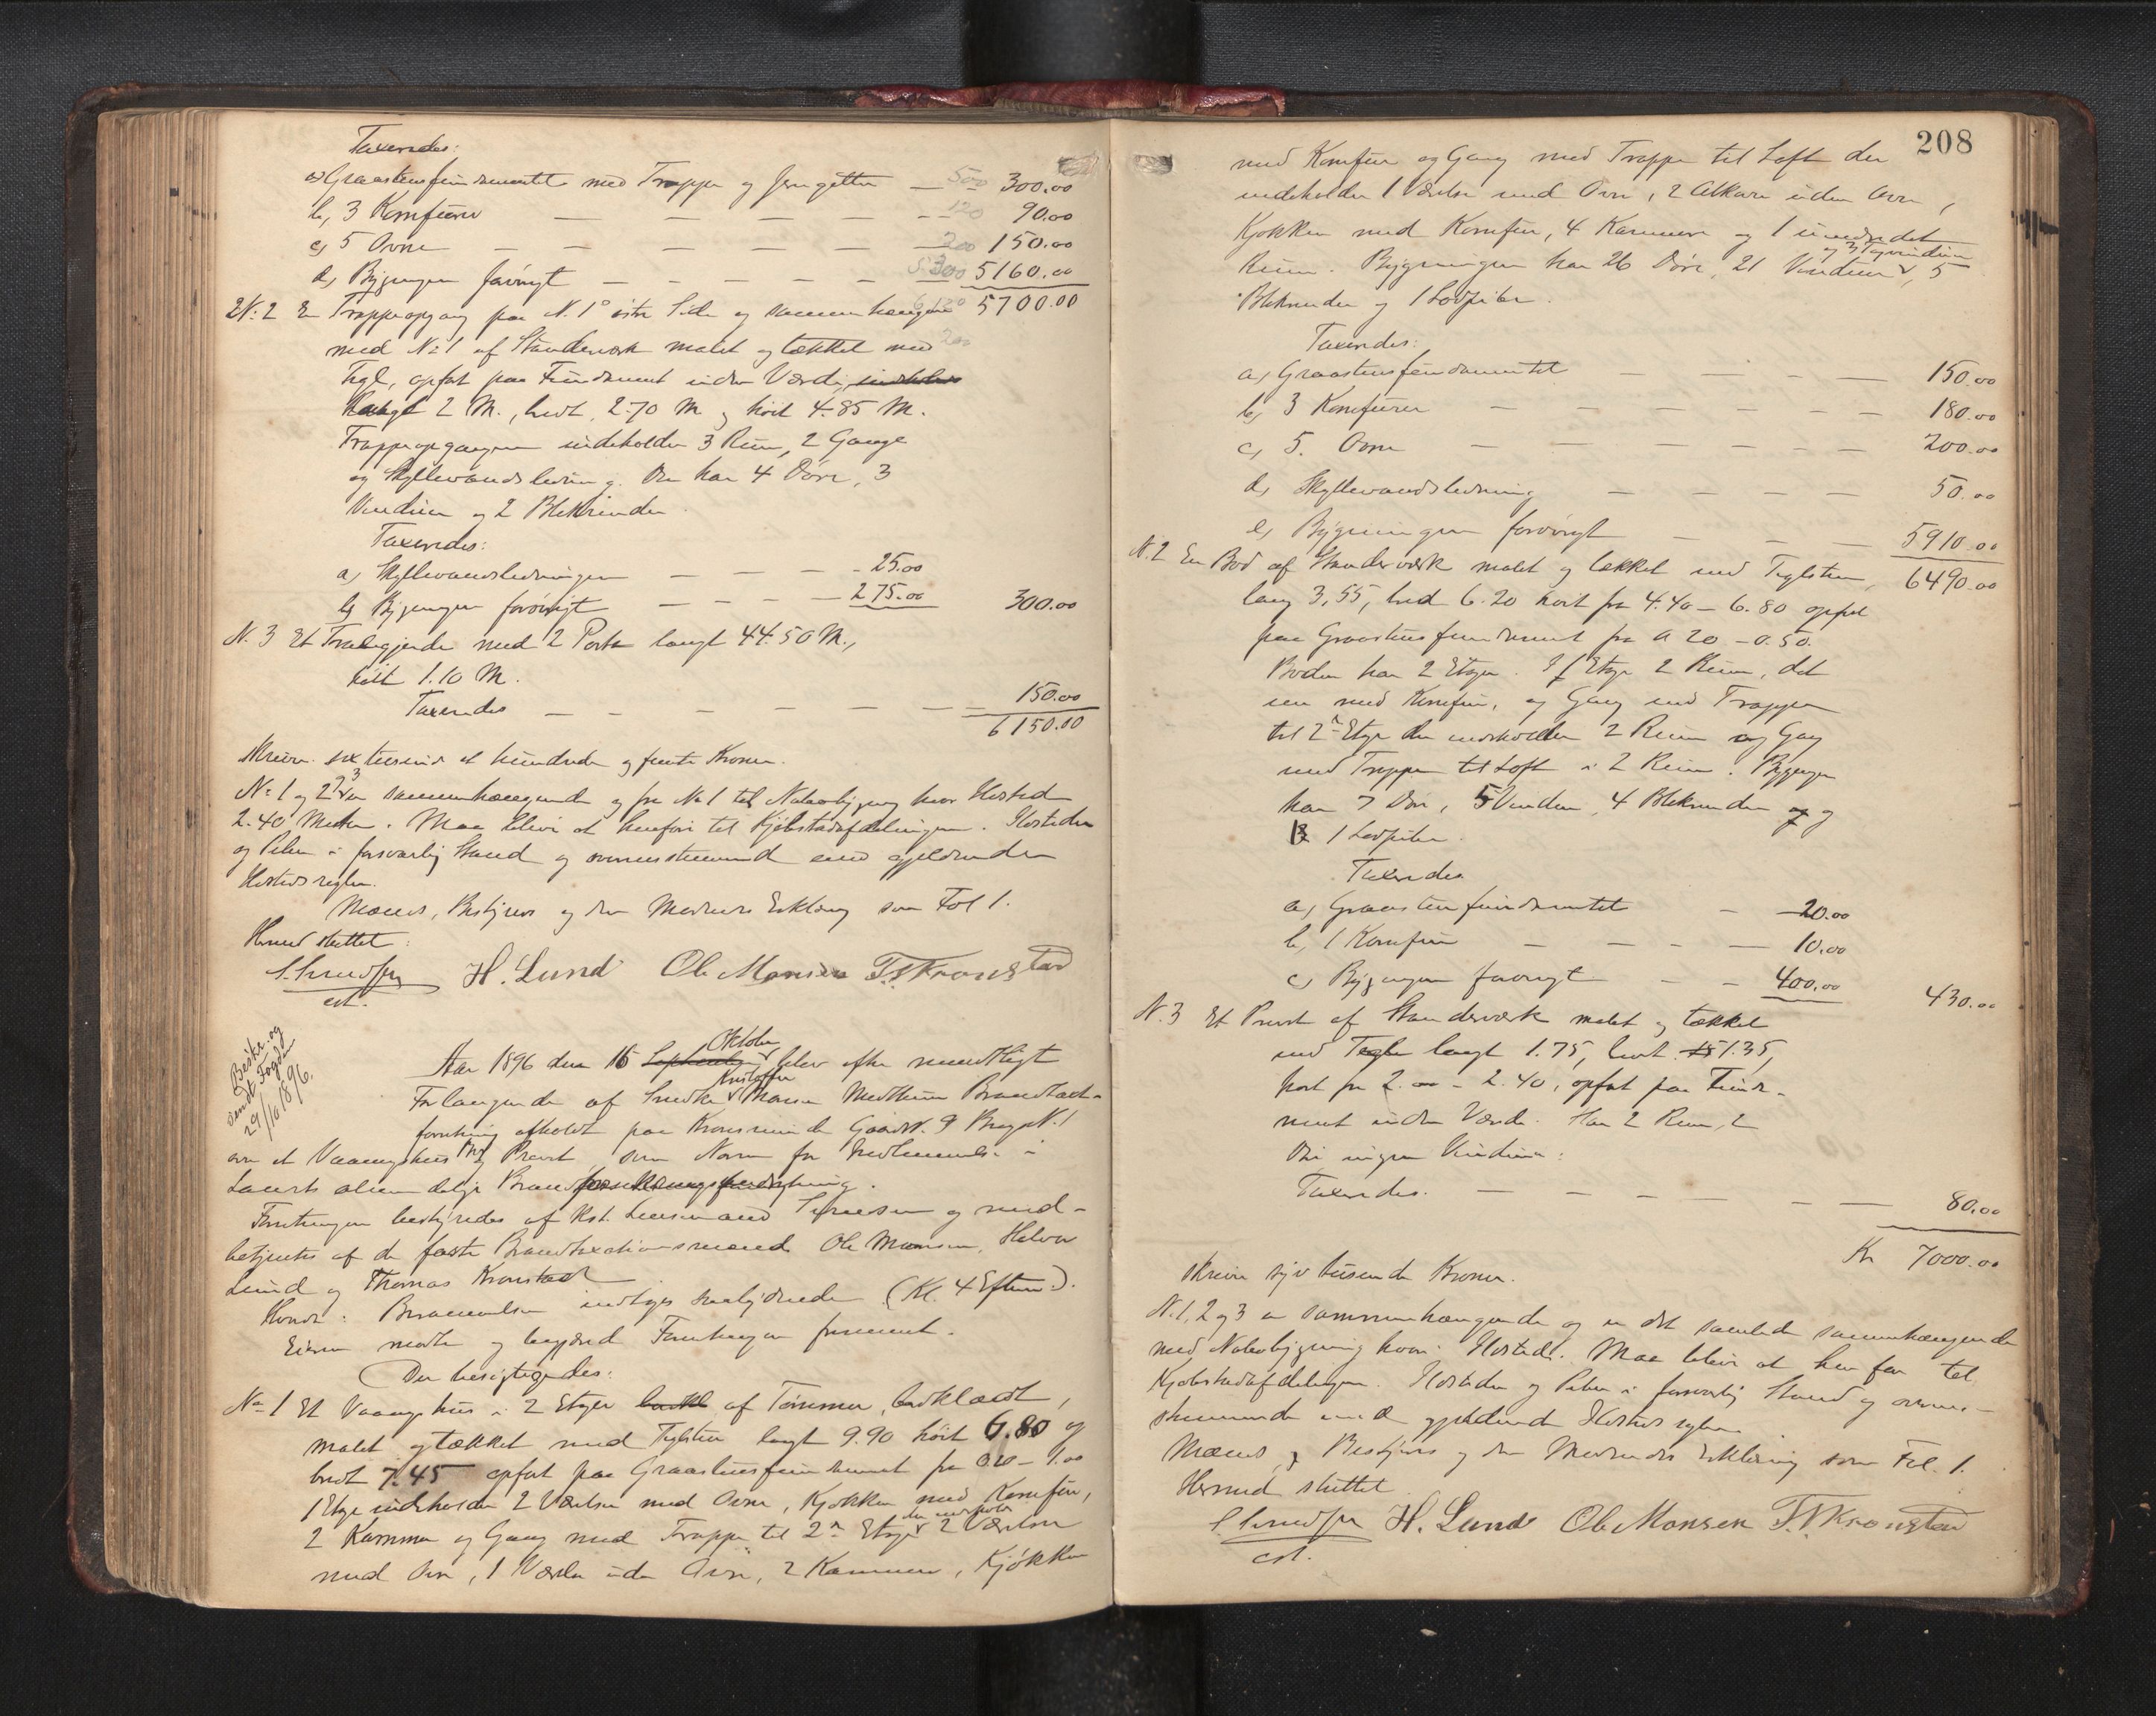 Taxeredes:
a) Graastensfundamentet med Trappe og Jerngitter — 500 300.00
b, 3 Komfurer — — — — — 120 90.00
c, 5 Ovne — — — — — — 200 150.00
d, Bygningen forøvrigt — — — — — 5300 5160.00
N. 2 En Trappeopgang paa N. 1 østre Side og sammenhængende 6120 5700.00
med No 1 af Standerværk malet og tækket med 200
Tegl, opført paa Fundament uden Værdi,
langt 2 M., bredt 2.70 M og høit 4.85 M.
Trappeopgangen indeholder 3 Rum, 2 Gange
og Skyllevandsledning. Den har 4 Døre, 3
Vinduer og 2 Blikrender.
Taxeredes:
a, Skyllevandsledningen — — — - 25.00
b, Bygningen forøvrigt — — — — 275.00 300.00
N. 3 Et Træhegjerde med 2 Porte langt 44.50 M.,
høit 1.10 M.
Taxeredes — — — — — — — 150.00
6150.00
skriver sex tusinde et hundrede og femti Kroner.
No 1 og 2 er sammenhængende og fra No 1 til Nabobygning hvor Ildsted
2.40 Meter. Maa blive at henføre til Kjøbstadafdelingen. Ildsteder
og Piber i forsvarlig Stand og overensstemmende med gjældende
Ildstedsregler.
Mænds, Bestyrers og den Medvidendes Erklæring som Fol 1.
Hermed sluttet:
H. Lund Ole Monsen T. S. Kronstad
cst.
Beskr. og
sendt Fogden
29/10 1896.
Aar 1896 den 16 September Oktober blev efter mundtligt
Forlangende af Smeden Kristoffer Hansen Brandtaxt-
forretning afholdt paa Kronsminde Gaards N. 9 Brugs N. 1
over et Vaaningshus og Privet som Norm for Indlemmelse i
Landets almindelige Brandforsikringsindretning.
Forretningen bestyredes af Kst. Lensmand og med-
betjentes af de faste Brandtaxationsmænd Ole Monsen, Halvor
Lund og Thomas Kronstad
Hvorda: Benævnelsen iagttages saaledes (Kl. 4 Efterm.).
Eieren mødte og begjærede Forretningen fremmet.
Der besigtigedes:
No 1 Et Vaaningshus i 2 Etager af Tømmer, bordklædt,
malet og tækket med Tegelsten langt 9.90 høit 6.80 og
bredt 7.45 opført paa Graastensfundament fra 0.20 – 1.00
1 Etage indeholder 2 Værelser med Ovne, Kjøkken med Komfur,
2 Kammer og Gang med Trappe til 2n Etage der indeholder 2 Værelser
med Ovn, 1 Værelse uden Ovn, 2 Kammere, Kjøkken
208
med Komfur og Gang med Trappe til Loft der
indeholder 1 Værelse med Ovn, 2 Alkover uden Ovn,
Kjøkken med Komfur, 4 Kammere og 1 uindredet
Rum. Bygningen har 26 Døre, 21 Vinduer og 3 Tagvinduer, 5
Blikrender og 1 Lodpibe.
Taxeredes:
a, Graastensfundamentet — — — — 150.00
b, 3 Komfurer — — — — — — 180.00
c, 5. Ovne — — — — — — 200.00
d, Skyllevandsledning — — — — 50.00
e, Bygningen forøvrigt — — — 5910.00
N. 2 En Bod af Standerværk malet og tækket med Teglsten, 6490.00
lang 3,55, bred 6.20 høit fra 4.40 – 6.80 opført
paa Graastensfundament fra 0.20 – 0.50.
Boden har 2 Etager. I 1 Etage 2 Rum, det
ene med Komfur, og Gang med Trappe
til 2n Etage der indeholder 2 Rum og Gang
med Trappe til Loft i 2 Rum. Bygningen
har 7 Døre, 5 Vinduer, 4 Blikrender og
1 Lodpibe.
Taxeredes
a, Graastenfundamentet — 20.00
b, 1 Komfur — — — — 10.00
c, Bygningen forøvrigt — — 400.00 430.00
N. 3 Et Privet af Standerværk malet og tækket
med Tegl langt 1.75, bredt 1.35,
høit fra 2.00 – 2.40, opført paa Funda-
ment uden Værdi. Har 2 Rum, 2
Døre ingen Vinduer.
Taxeredes. — — — — — — 80.00
Kr 7000.00
skriver syv tusende Kroner.
N. 1, 2 og 3 er sammenhængende og er det samlede sammenhængende
med Nabobygning hvor Ildsted. Maa blive at henføre til
Kjøbstadafdelingen. Ildsteder og Piber i forsvarlig Stand og overens-
stemmende med gjældende Ildstedsregler.
Mænds, Bestyrers og den Medvidendes Erklæring som Fol. 1.
Hermed sluttet
H. Lund Ole Monsen T. S. Kronstad
cst.